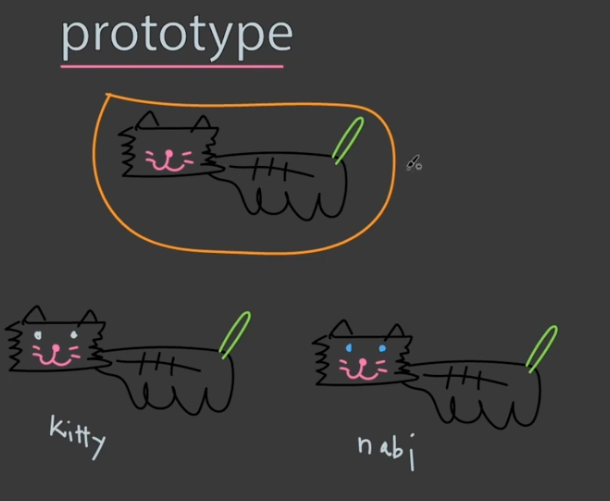 prototype
kitty
nabi